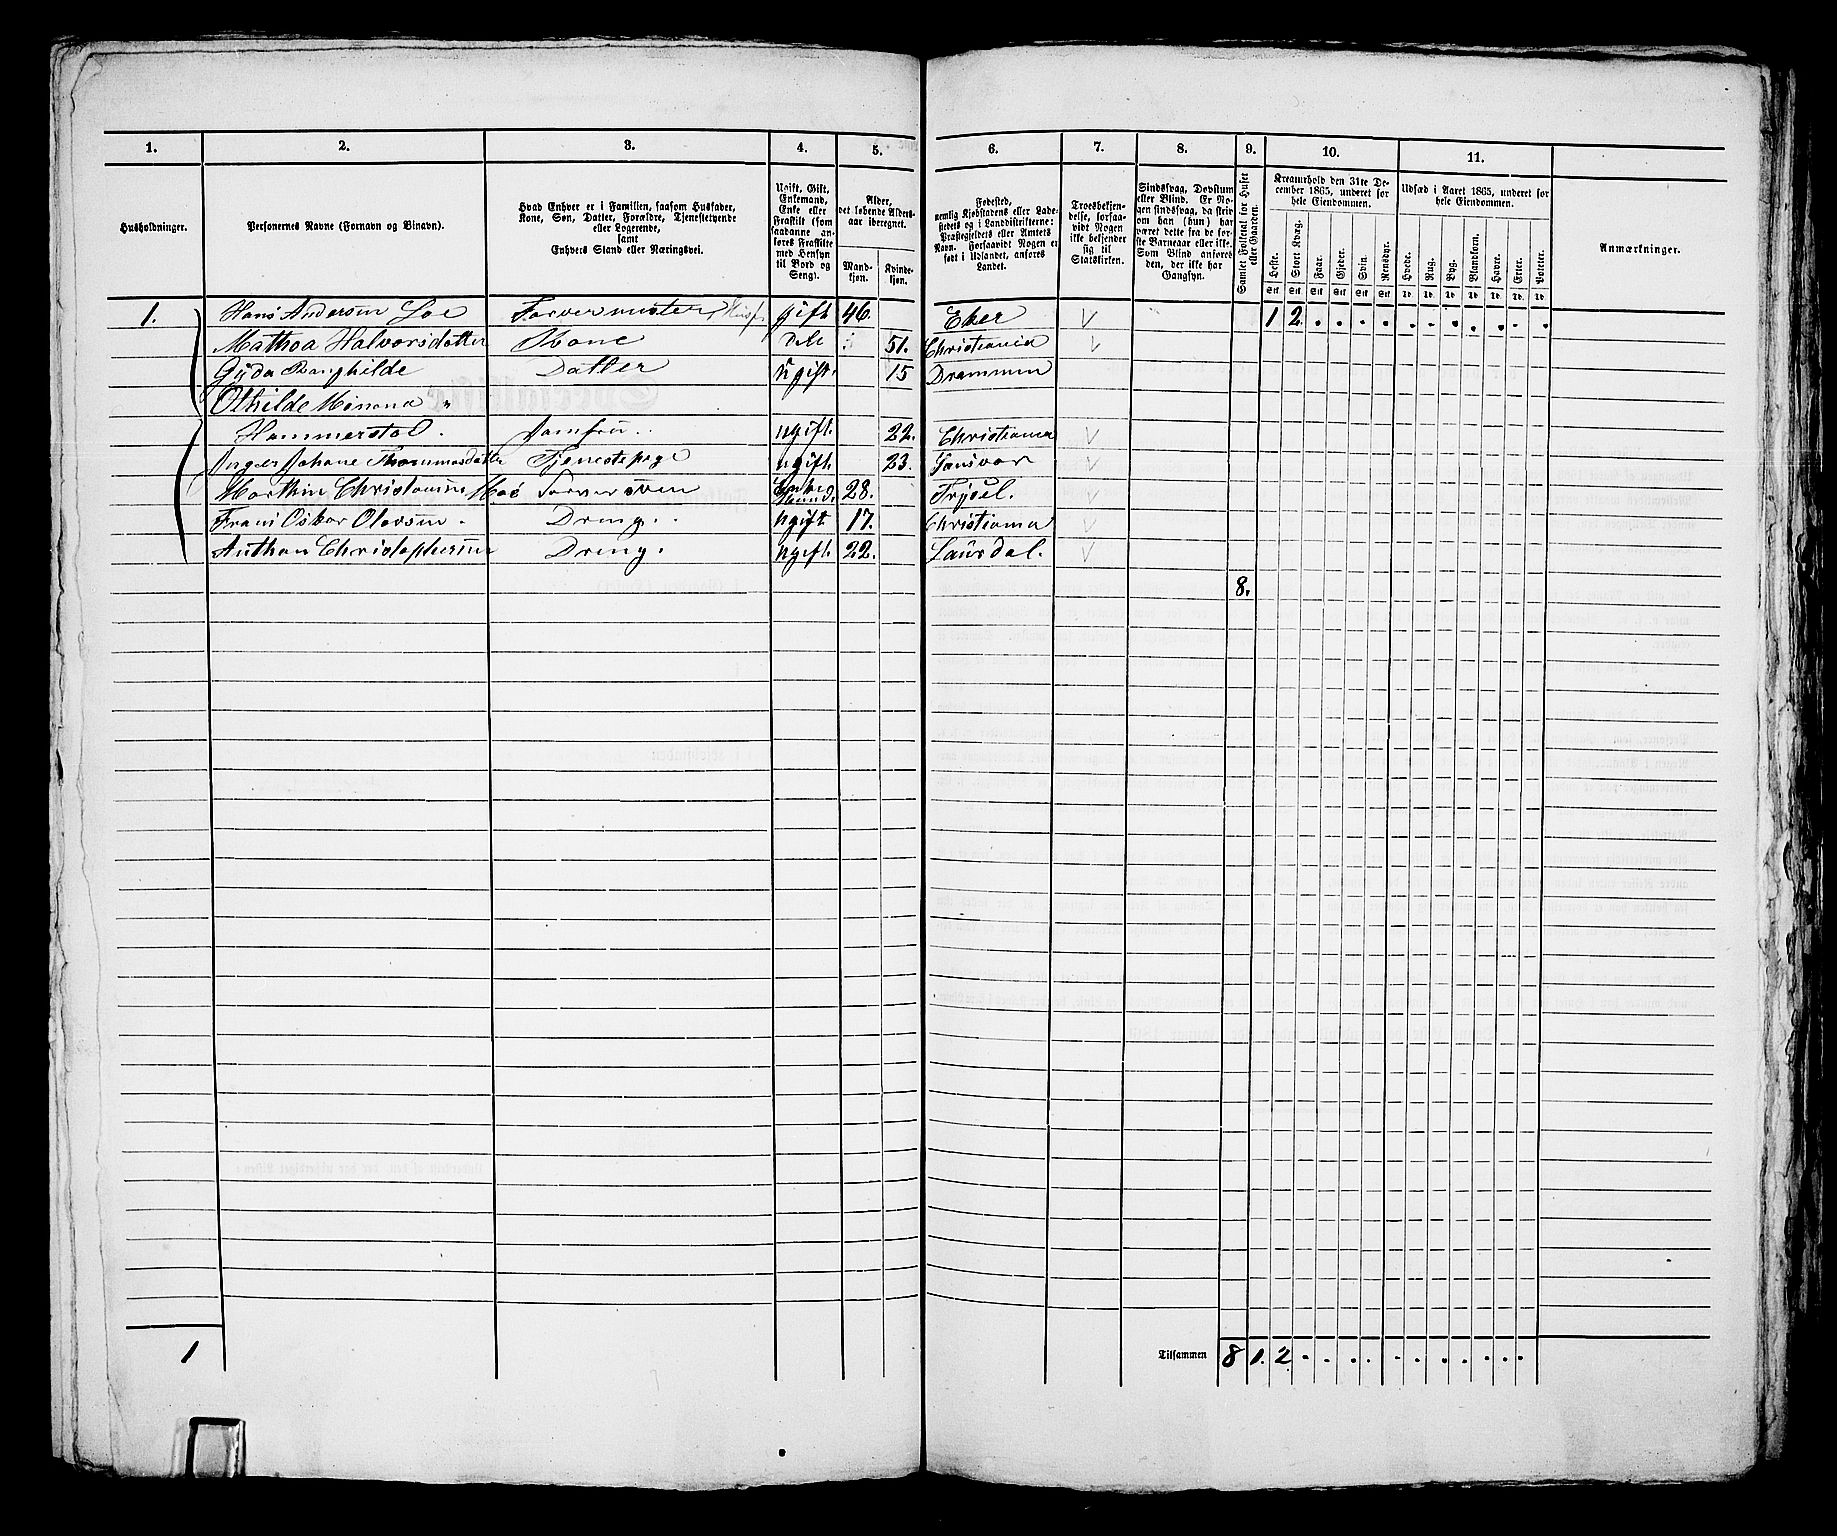 1. 2. 3. 4. 5. 6. 7. 8. 9. 10. 11.
Husholdninger.
Personernes Navne (Fornavn og Binavn).
Hvad Enhver er i Familien, saasom Husfader,
Kone, Søn, Datter, Forældre, Tjenestetyende
eller Logerende,
samt
Enhvers Stand eller Næringsvei.
Ugift, Gift,
Enkemand,
Enke eller
Fraskilt (som
saadanne an-
føres Fraskilte
med Hensyn
til Bord og
Seng).
Alder,
det løbende Alders-
aar iberegnet.
Mand-
kjøn.
Kvinde-
kjøn.
Fødested,
nemlig Kjøbstadens eller Lade-
stedets og i Landdistrikterne:
Præstegjeldets eller Amtets
Navn. Forsaavidt Nogen er
født i Udlandet, anføres
Landet.
Troesbekjen-
delse, forsaa-
vidt Nogen
ikke bekjender
sig til
Statskirken.
Sindssvag, Døvstum
eller Blind. Er No-
gen sindssvag, da skriv
om han (hun) har
været dette fra de før-
ste Barneaar eller ikke.
Som Blind anføres
den, der ikke har
Gangsyn.
Samlet Folketal for Huset
eller Gaarden.
Kreaturhold den 31te De-
cember 1865, underet for
hele Eiendommen.
Heste. Stort Kvæg. Faar. Gjeder. Svin. Rensdyr.
Stk Stk Stk Stk Stk Stk
Udsæd i Aaret 1865, underet for
hele Eiendommen.
Hvede. Rug. Byg. Blandkorn. Havre. Erter. Poteter.
Td. Td. Td. Td. Td. Td. Td.
Anmærkninger.
1. Hans Andersen Loe Farvermester, Husf. gift 46. Eker V 1 2 . . . . . . . . . . .
Mathea Halvorsdatter Kone Do 51. Christiania V
Gyda Ranghilde Datter ugift. 15 Drammen V
Othilde Minona "
Hammerstad. Jomfru.. ugift. 22. Christiania V
Inger Johane Thommasdatter Tjenestepige ugift 23. V
Marthin Christiansen Moe Farversven 28. Trysel. V
Frans Oskar Olavsen. Dreng.. ugift 17. Christiania V
Anthon Christophersen Dreng. ugift. 22. Laurdal. V
8.
1
Tilsammen 8 1. 2 . . . . . . . . . . .